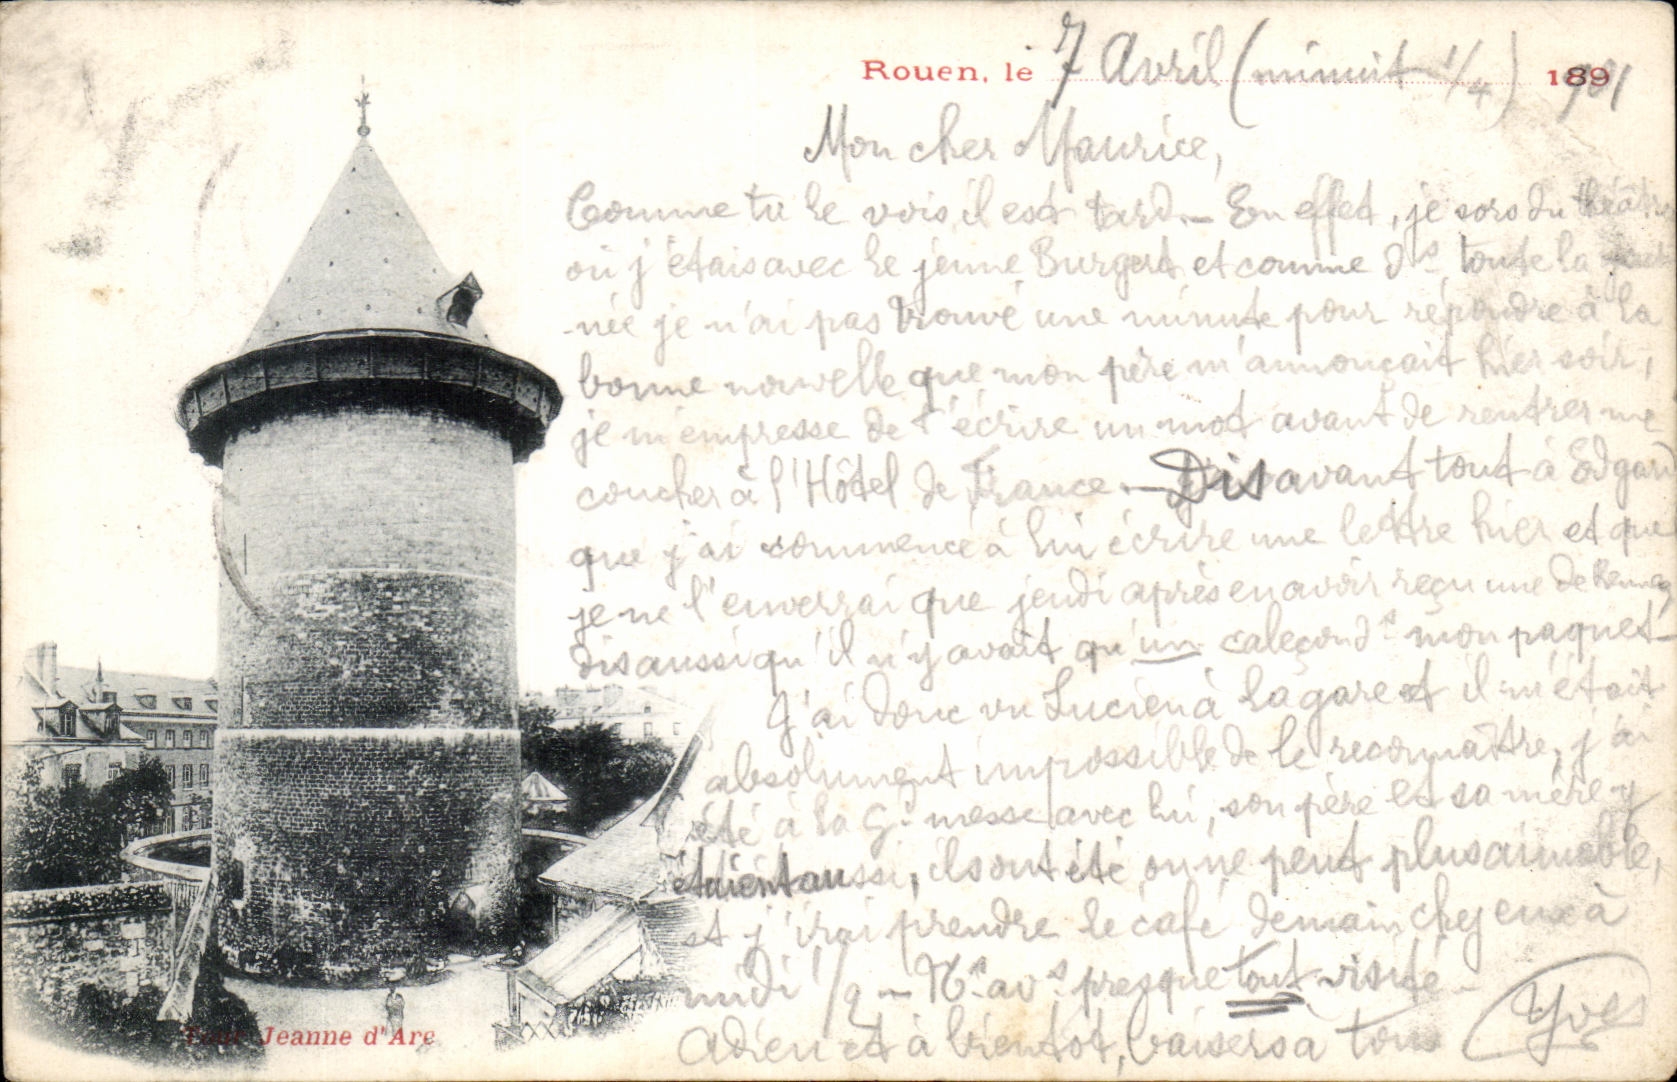 Rouen, le 7 Avril (minuit 1/4) 1901
Mon cher Maurice,
Comme tu le vois, il est tard. — En effet, je sors du théâtre
où j'étais avec le jeune Burgert et comme ds toute la
née je n'ai pas trouvé une minute pour répondre à la
bonne nouvelle que mon père m'annonçait hier soir,
je m'empresse de t'écrire un mot avant de rentrer me
coucher à l'Hôtel de France. — Dis avant tout à Edgard
que j'ai commencé à lui écrire une lettre hier et que
je ne l'enverrai que jeudi après en avoir reçu une de Rennes
dis aussi qu'il n'y avait qu'un caleçon ds mon paquet
J'ai donc vu Lucien à la gare et il m'était
absolument impossible de le reconnaître, j'ai
été à la Gde messe avec lui, son père et sa mère y
étaient aussi, ils ont été on ne peut plus aimable,
et j'irai prendre le café demain chez eux à
midi 1/2 — Ns avs presque tout visité —
Adieu et à bientôt, baisers à tous Yves
Tour Jeanne d'Arc